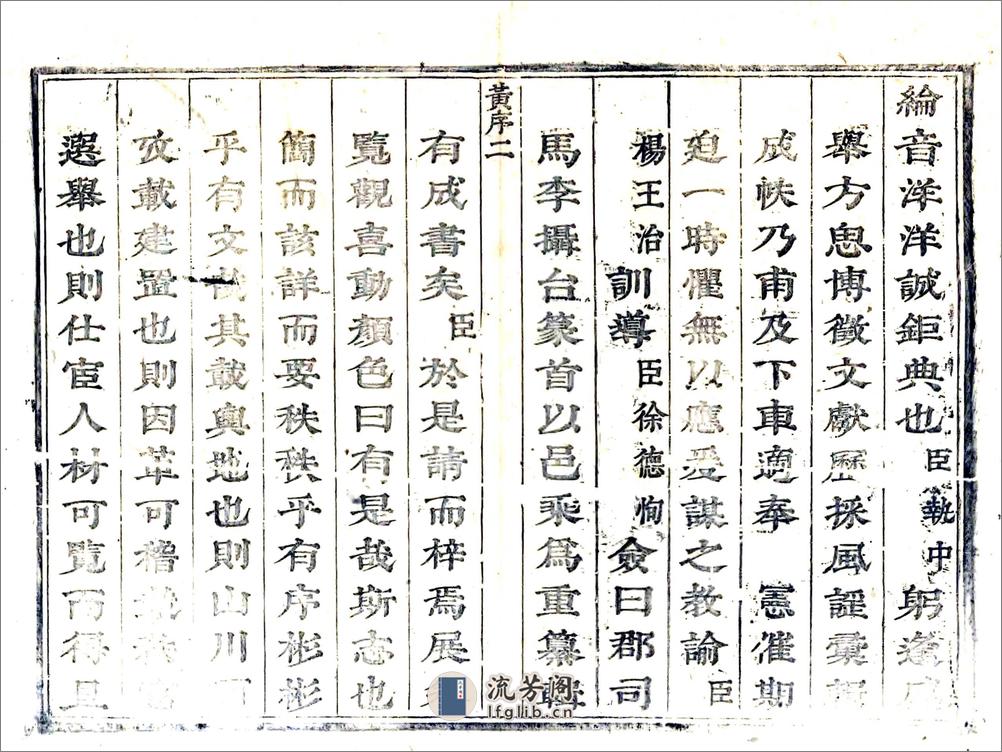 綸音洋洋誠鉅典也臣執中躬逢
舉方思博徵文獻歷採風謡彙輯
成帙乃甫及下車適奉　憲催期
迫一時懼無以應爰謀之教諭臣
楊王治訓導臣徐德恂僉曰郡司
馬李攝台篆首以邑乘爲重纂輯
黃序二
有成書矣臣　於是請而梓焉展
覽觀喜動顏色曰有是哉斯志也
簡而該詳而要秩秩乎有序彬彬
乎有文哉其載輿地也則山川可
攷載建置也則因革可稽
選舉也則仕宦人材可覽而得且
流芳阁
lfglib.cn